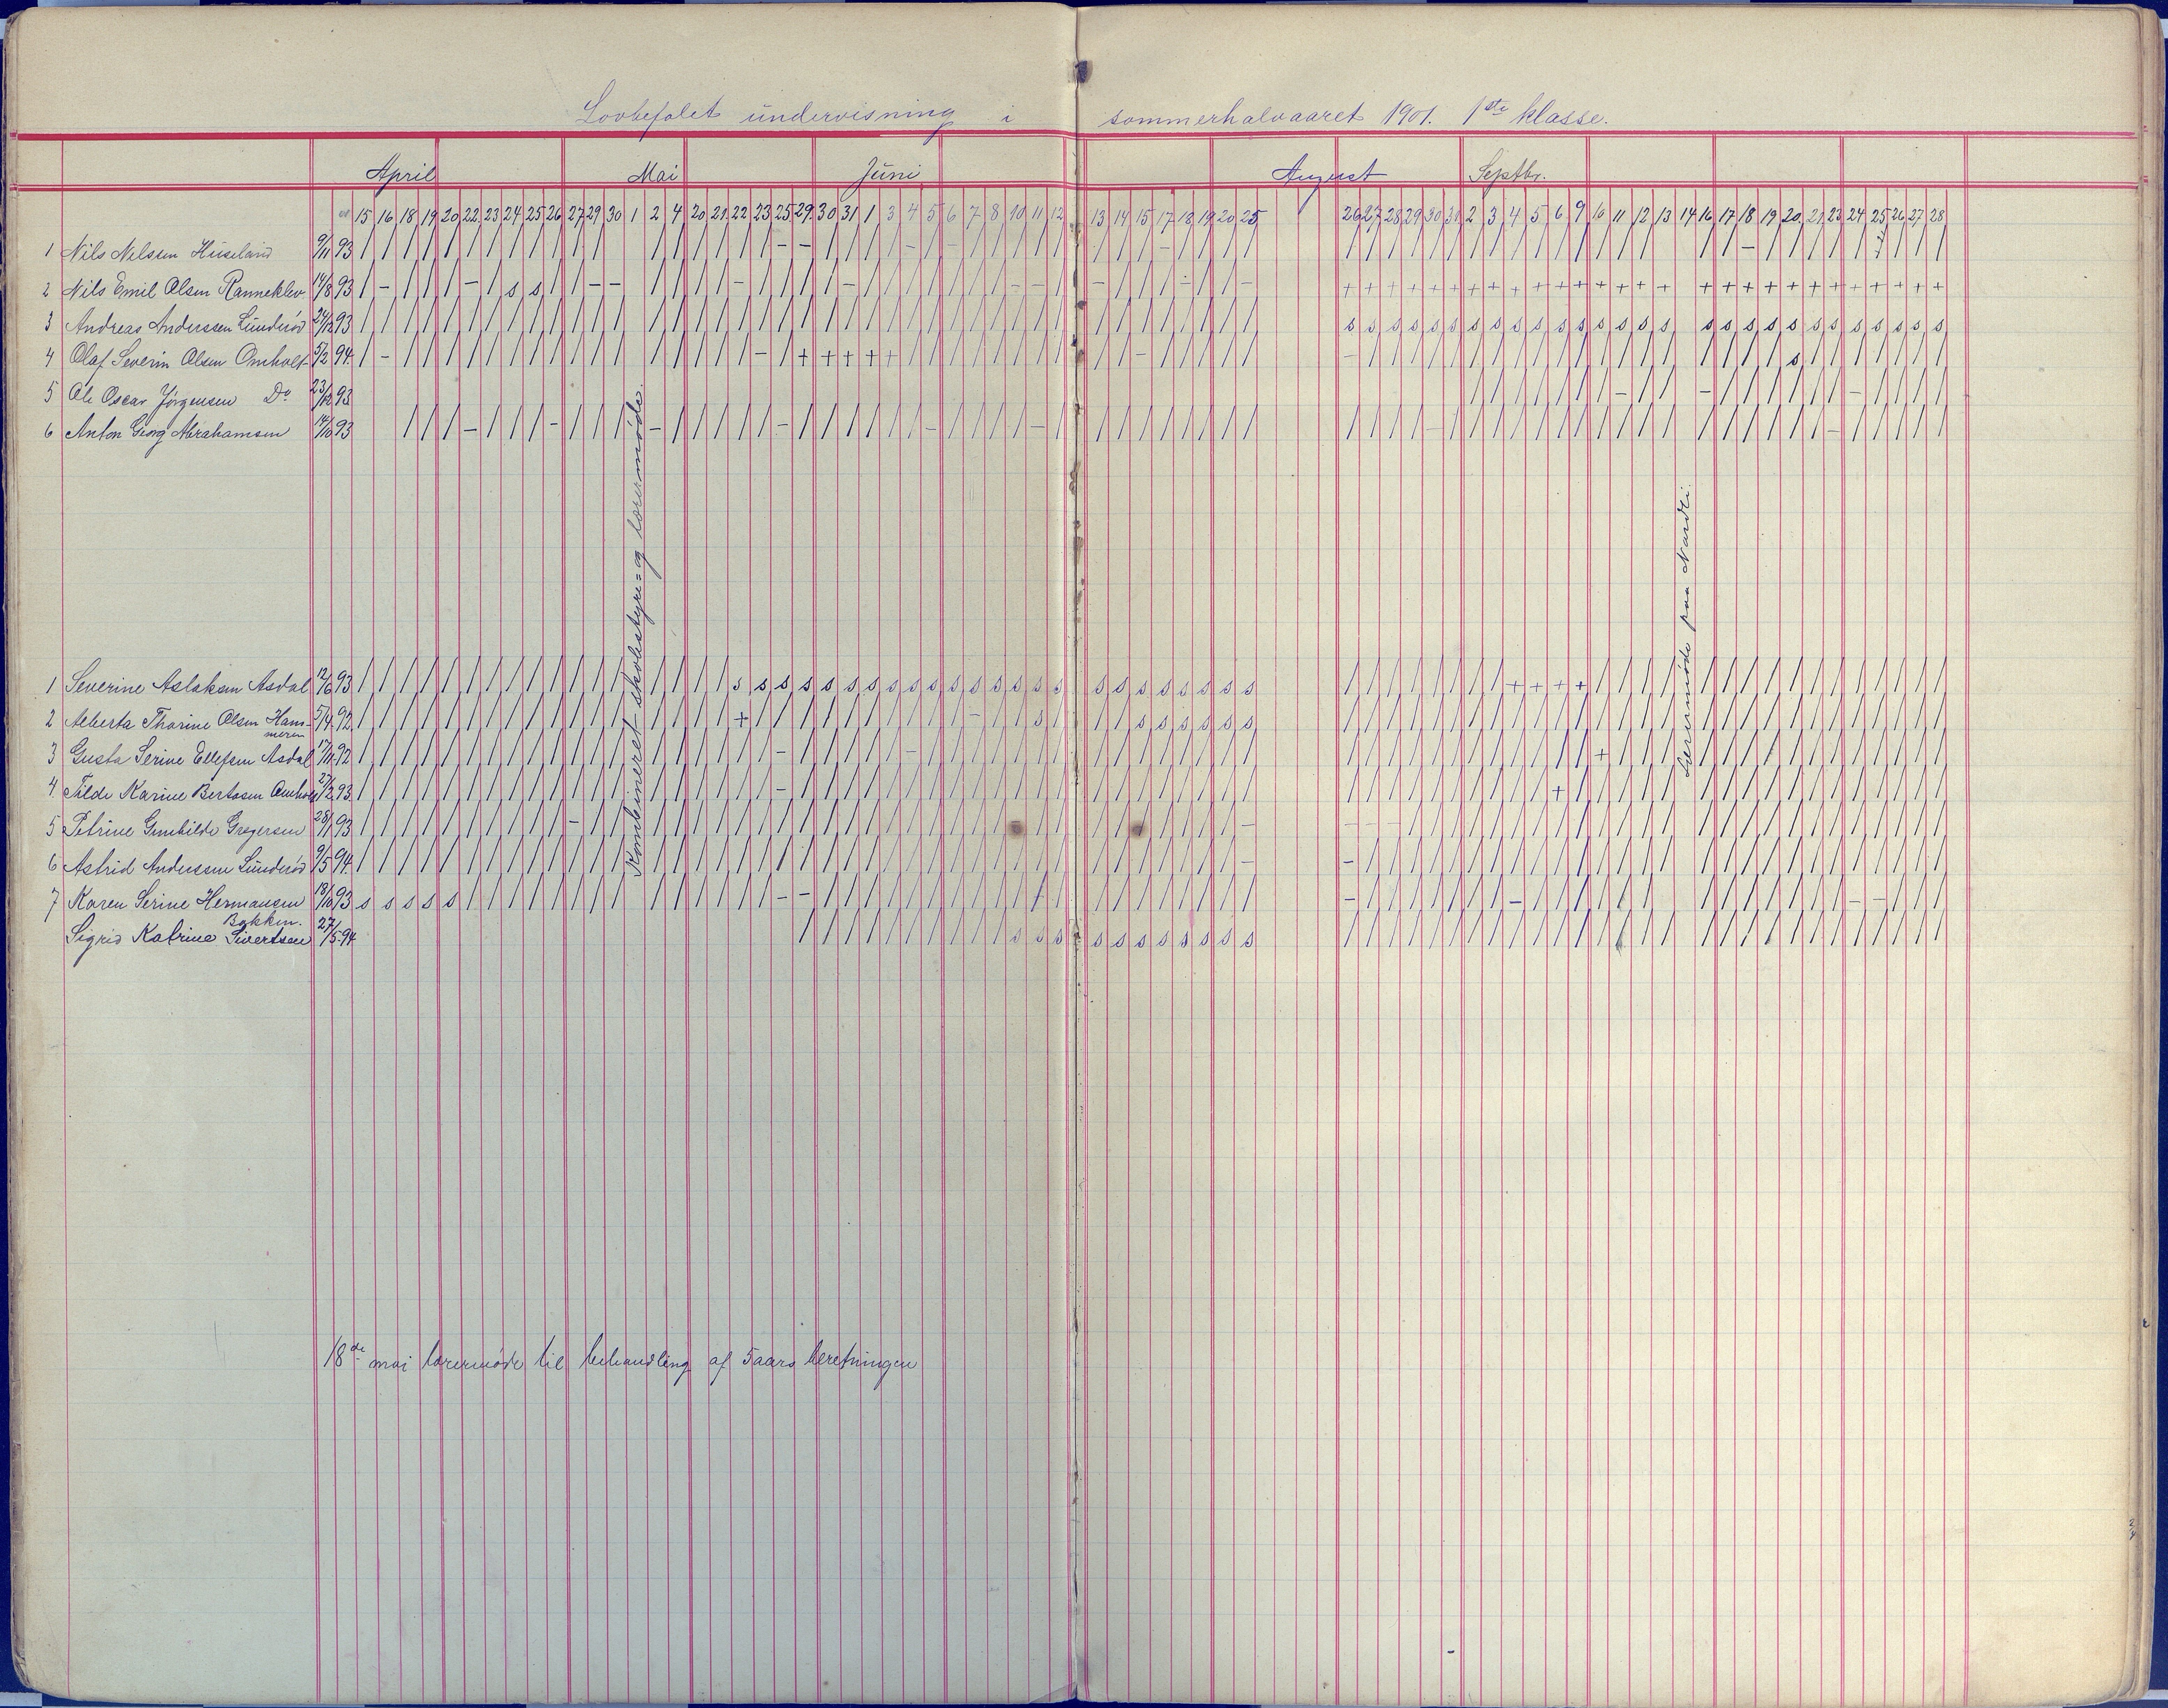 Lovbefalet undervisning i sommerhalvaaret 1901. 1ste klasse.
April Mai Juni August Septbr.
15 16 18 19 20 22 23 24 25 26 27 29 30 1 2 4 20 21 22 23 25 29 30 31 1 3 4 5 6 7 8 10 11 12 13 14 15 17 18 19 20 25 26 27 28 29 30 31 2 3 4 5 6 9 10 11 12 13 14 16 17 18 19 20 21 23 24 25 26 27 28
1 Nils Nilssen Huseland 9/11 93 / / / / / / / / / / / / / / / / / / / - - / / / / - / - / / / - / - / / / - / / / / / / / / / / / / / / / / / / / / / / - / / / / / / / / /
2 Nils Emil Olsen Ranneklev 14/8 93 / - / / / - / s s / / - - / / / / - / / / / - / / / / / / / - - / - / / / - / / - + + + + + + + + + + + + + + + + + + + + + + + + + + +
3 Andreas Anderssen Lunderød 24/12 93 / / / / / / / / / / / / / / / / / / / / / / / / / / / / / / / / / / / / / / / / / s s s s s s s s s s s s s s s s s s s s s s s s s s s
4 Olaf Severin Olsen Omholt 5/2 94. / - / / / / / / / / / / / / / / / / - / + + + + + / / / / / / / / / / - / / / / / - / / / / / / / / / / / / / / / / / / / s / / / / / / /
5 Ole Oscar Jörgensen Do 23/12 93 / / / / / / / - / / - / / / / / / - / / / /
6 Anton Georg Abrahamsen 14/10 93 / / / - / / / - / / / - / / / / / - / / / / / / - / / / / / / / / / / / / / / / / / / - / / / / / / / / / / / / / / / / / - / / / / /
Kombineret skolestyre= og lærermøde.
Lærermøde paa Nardli.
1 Severine Aslaksen Asdal 12/6 93 / / / / / / / / / / / / / / / / / s s s s s s s s s s s s s s s s s s s s s s s s / / / / / / / / + + + + / / / / / / / / / / / / / / /
2 Alberta Thorine Olsen Ham-
meren 5/4 92. / / / / / / / / / / / / / / / / / + / / / / / / / / / / - / / s / / / s s s s s s / / / / / / / / / / / / / / / / / / / / / / / / / / /
3 Gusta Serine Ellefsen Asdal 17/11 92 / / / / / / / / / / / / / / / / / / / - / / / / / - / / / / / / / / / / / / / / / / / / / / / / / / / / / + / / / / / / / / / / / / / /
4. Tilda Karine Bertosen Omholt 27/2 93. / / / / / / / / / / / / / / / / / / / - / / / / / / / / / / / / / / / / / / / / / / / / / / / / / / / + / / / / / / / / / / / / / / / /
5 Petrine Gunhilde Gregersen 28/1 93 / / / / / / / / / / - / / / / / / / / / / / / / / / / / / / / / / / / / / / / / - - - - / / / / / / / / / / / / / / / / / / / / / / / /
6 Astrid Anderssen Lunderød 9/5 94. / / / / / / / / / / / / / / / / / / / / / / / / / / / / / / / / / / / / / / / / - - / / / / / / / / / / / / / / / / / / / / / / / / / /
7 Karen Serine Hermansen
Bakken. 18/10 93 s s s s s / / / / / / / / / / / / / / - - / / / / / / / / / / / / / / / / / / / / / - / / / / / / / - / / / / / / / / / / / / / / - - / / /
Sigrid Katrine Sivertsen 27/5-94 / / / / / / / / / / s s s s s s s s s s s / / / / / / / / / / / / / / / / / / / / / / / / / / /
18de mai lærermøde til behandling af 5aars beretningen